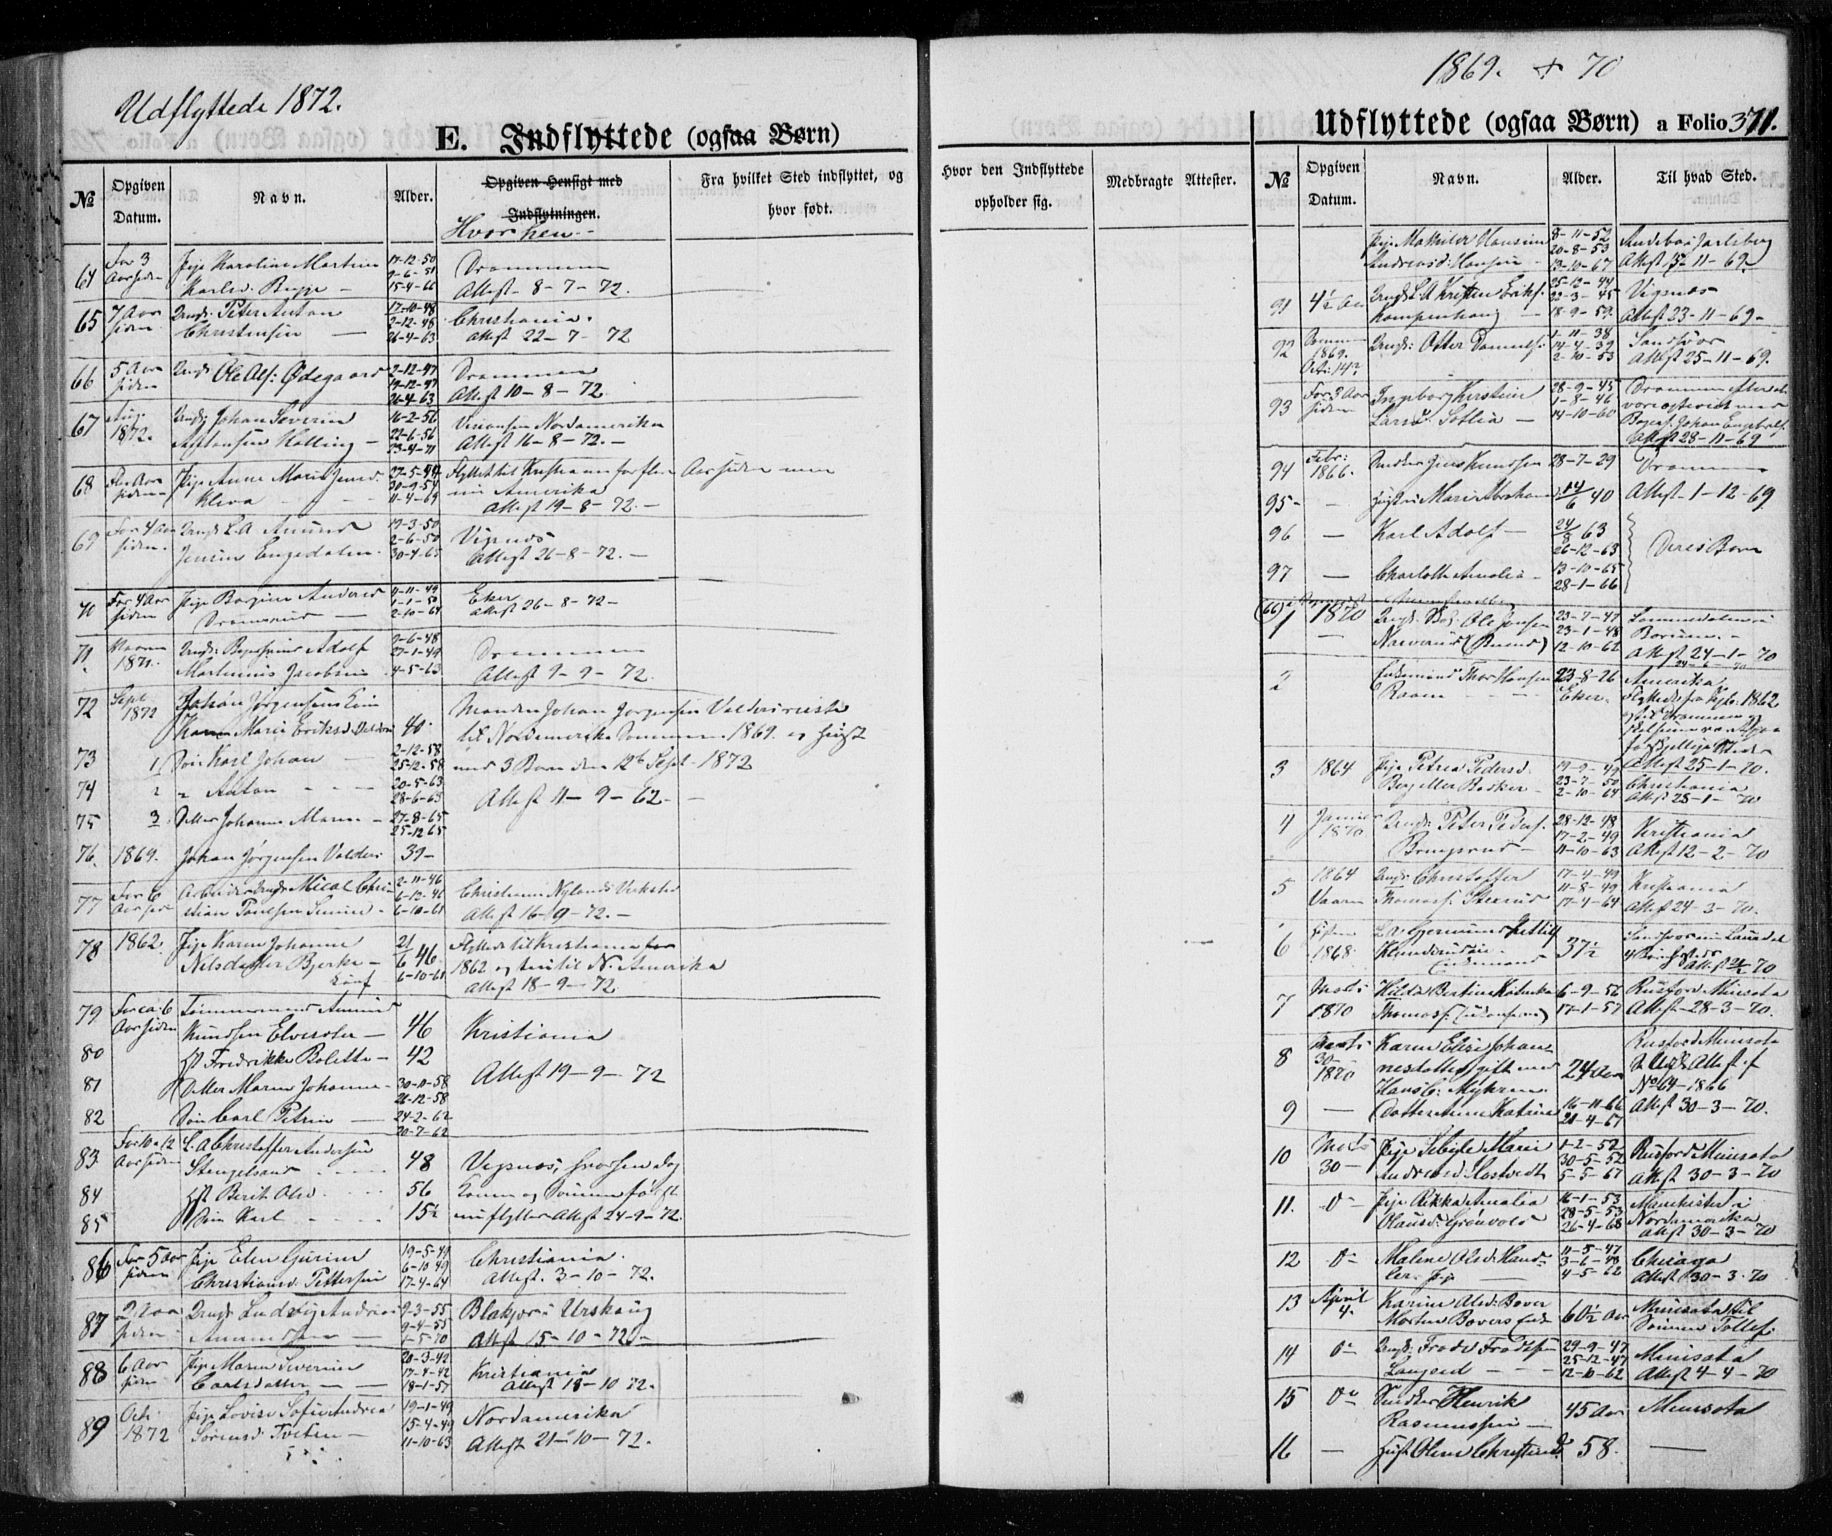 Udflyttede 1872.
E. Indflyttede (ogsaa Børn)
№
Opgiven Datum.
Navn.
Alder.
Opgiven Hensigt med Indflytningen.
Hvorhen
Fra hvilket Sted indflyttet, og hvor født.
64 For 3 Aar siden Pige Karoline Martine Karlsd. Bugge 17-12-50 9-6-51 15-4-66 Drammen Attest 8-7-72.
65 7 Aar siden Ungk. Peter Anton Christensen 17-10-48 2-12-48 26-4-63 Christiania. Attest 22-7-72
66 5 Aar siden Ungk. Ole Als: Ødegaard 2-12-47 19-12-47 26-4-63 Drammen Attest 10-8-72.
67 Aug. 1872. Ungk. Johan Severin 16-2-56 22-6-56 23-4-71 Nordamerika Attest 16-8-72.
68 Aar siden Pige Anne Marie Jensd. Kleva 30-9-54 11-4-69 Flyttet til Kristiania for Aar siden men nu Amerika Attest 19-8-72.
69 For 4 Aar siden Ungk. L.A. Amund Jensen Engedalen 19-3-50 2-6-50 30-4-65 Vigsnes Attest 26-8-72.
70 For 4 Aar siden Pige Bergine Andersd. 11-11-49 1-1-50 2-10-64 Eker Attest 26-8-72
71 1871. Ungk. Adolf Martinius Jacobsen 2-6-48 27-1-49 4-5-63 Drammen Attest 9-9-72.
72 Sept 1872 Johan Jørgensens Kone Karen Marie Eriksd. Valder 40. Manden Johan Jørgensen Valder reiste til Nordamerika Sommeren 1869. og Hust.
73 1 Søn Karl Johan 2-12-58 25-12-58 med 3 Børn den 12te Sept 1872
74 2 " Anton 20-5-63 28-6-63 Attest 11-9-62.
75 3 Datter Johanne Marie 27-8-65 25-12 65
76. 1869. Johan Jørgensen Valder 39
77 For 6 Aar siden Arbeider Ungk. Micael Christian Paulsen 2-11-46 6-12-46 6-10-61 Christiania Nylands Værksted Attest 16-9-72.
78 1862. Pige Karen Johanne Nilsdatter Bjerke 21/6 46 6-10-61 Flyttede til Kristiania før 1862 og nu til N. Amerika Attest 18-9-72
79 For ca 6 Aar siden Tømmermand Amund Knudsen 46 Kristiania
80 H. Fredrikke Bolette 42 Attest 19-9-72
81 Datter Maren Johanne 30-11-58 26-12-58
82 Søn Carl Petrin 24-2-62 20-7-62
83 For 10 a 12 Aar siden L.A. Christoffer Andersen Stengelsrud 48 Vigsnes, hvor hen Søg
84 Hst Berit Olsd. 56 Konen og Sønnen først
85 Søn Karl 15½ nu flytter Attest 24-9-72.
86 For 5 Aar siden Pige Elen Gurine Christiansd. Pettersen 19-5-49 6-10 49 17-4-64 Christiania. Attest. 3-10-72.
87 2 Aar siden Ungk. Ludvig Andreas Amundsen 9-3-55 9-4-55 1-5-70 Blakjer i Urskoug Attest 15-10-72
88 6 Aar siden Pige Maren Severine Carlsdatter 20-3-42 17-4-42 18-1-57 Kristiania Attest 18-10 72.
89 Oct. 1872 Pige Lovise Sofie Andrea Sørensd. Tveten 19-1-49 15-4-49 11-10-63 Nordamerika Attest 21-10-72.
Hvor den Indflyttede opholder sig.
Medbragte Attester.
1869. + 70
Udflyttede (ogsaa Børn) a Folio 371.
№
Opgiven Datum.
Navn.
Alder.
Til hvad Sted.
Pige Mathilde Hansine Andreasd. Hansen 8-11-52 20-8-53 13-10-67 Andebu i Jarlsberg Attest 11-69
91 4½ Aar Ungk. L.A. Kristen Eriks. Kampenhaug 25-12-44 22-3-45 18-9-59 Vigsnes Attest 23-11-69
92 Sommer 1869. Oct. 14de Ungk. Otter Danniels. 1-11-38 14-4-39 2-10-53 Sandsvær Attest 25-11-69.
93 For 3 Aar siden Ingeborg Kirstine Larsd. Sollia 28-9-45 1-8-46 14-10-60 Drammen efter at være Johan Engebrets. Attest 28-11-69
94 Febr: 1866. Snedker Jens Knudsen 28-7-29 Drammen
95 Hustru Marie Abrahamsd. 14/6 40 Attest 1-12-69
96 Karl Adolf 24/8 63 26-12-63
97 Charlotte Amalia 13-10-65 28-1-66 Deres Børn
(66) 1 1870 Ungk. Ole Jensen Narverud (Bruerud) 23-7-47 23-1-48 12-10-62 Lommedalen i Bærum. Attest 24-1-70
2 Enkemand Thor Hansen Raaen 23-8-26 Eker. Amerika. Flyttede fra Kjb. 1862 og til Drammen forskjellige Steder Attest 25-1-70.
3 1864 Pige Petrea Pedersd. Berg eller Bakker 19-9-49 23-7-50 2-10-64 Christiania Attest 25-1-70
4 Januar 1870 Ungk. Peter Peders. 28-12-48 17-2-49 11-10-63 Kristiania Attest 12-2-70
5 1864 Vaaren Ungk. Christoffer Thomass. Stenrud 17-4-49 11-8-49 17-4-64 Kristiania Attest 24-3-70.
6 1868. L.A. Gjermund Enkemand 37½ Sandsvær Attest 70
7 Marts 1870 Hilda Bertine Thomass. 6-9-56 17-1-57 Rusford Minisota Attest 28-3-70.
8 Marts 30 1870 Karen Elise Johannesdatter gift med Hans C. Myhren 24 Aar Rusford Minisota Attest f No 64-1866
9 Datter Anne Katrine 16-11-66 21-4-67 Attest 30-3-70.
10 Marts 30 Pige Sibille Marie Andreasd. Sostvedt 1-2-52 30-5-52 5-5-67 Rusford Minisota Attest 30-3-70
11. Do Pige Rikka Amalia Olausd. Grønvold 16-1-53 28-5-53 26-4-68 i Nordamerika Attest 30-3-70
12 Do Malene Olsd. Pige 11-5-47 3-6-48 4-5-62 Chicago Attest 30-3-70
13 April 4. Karine Olsd. Bover Morten Bovers Enke 60½ Aar Minisota til Sønnen Tollef.
14 Do Ungk. Frode Frodesen Langerud 29-9-47 25-12-47 12-10-62 Minisota Attest 4-4-70
15 Do Snedker Henrik Rasmussen 45 Aar Minisota
16 Hust. Olene Christiansd. 58.